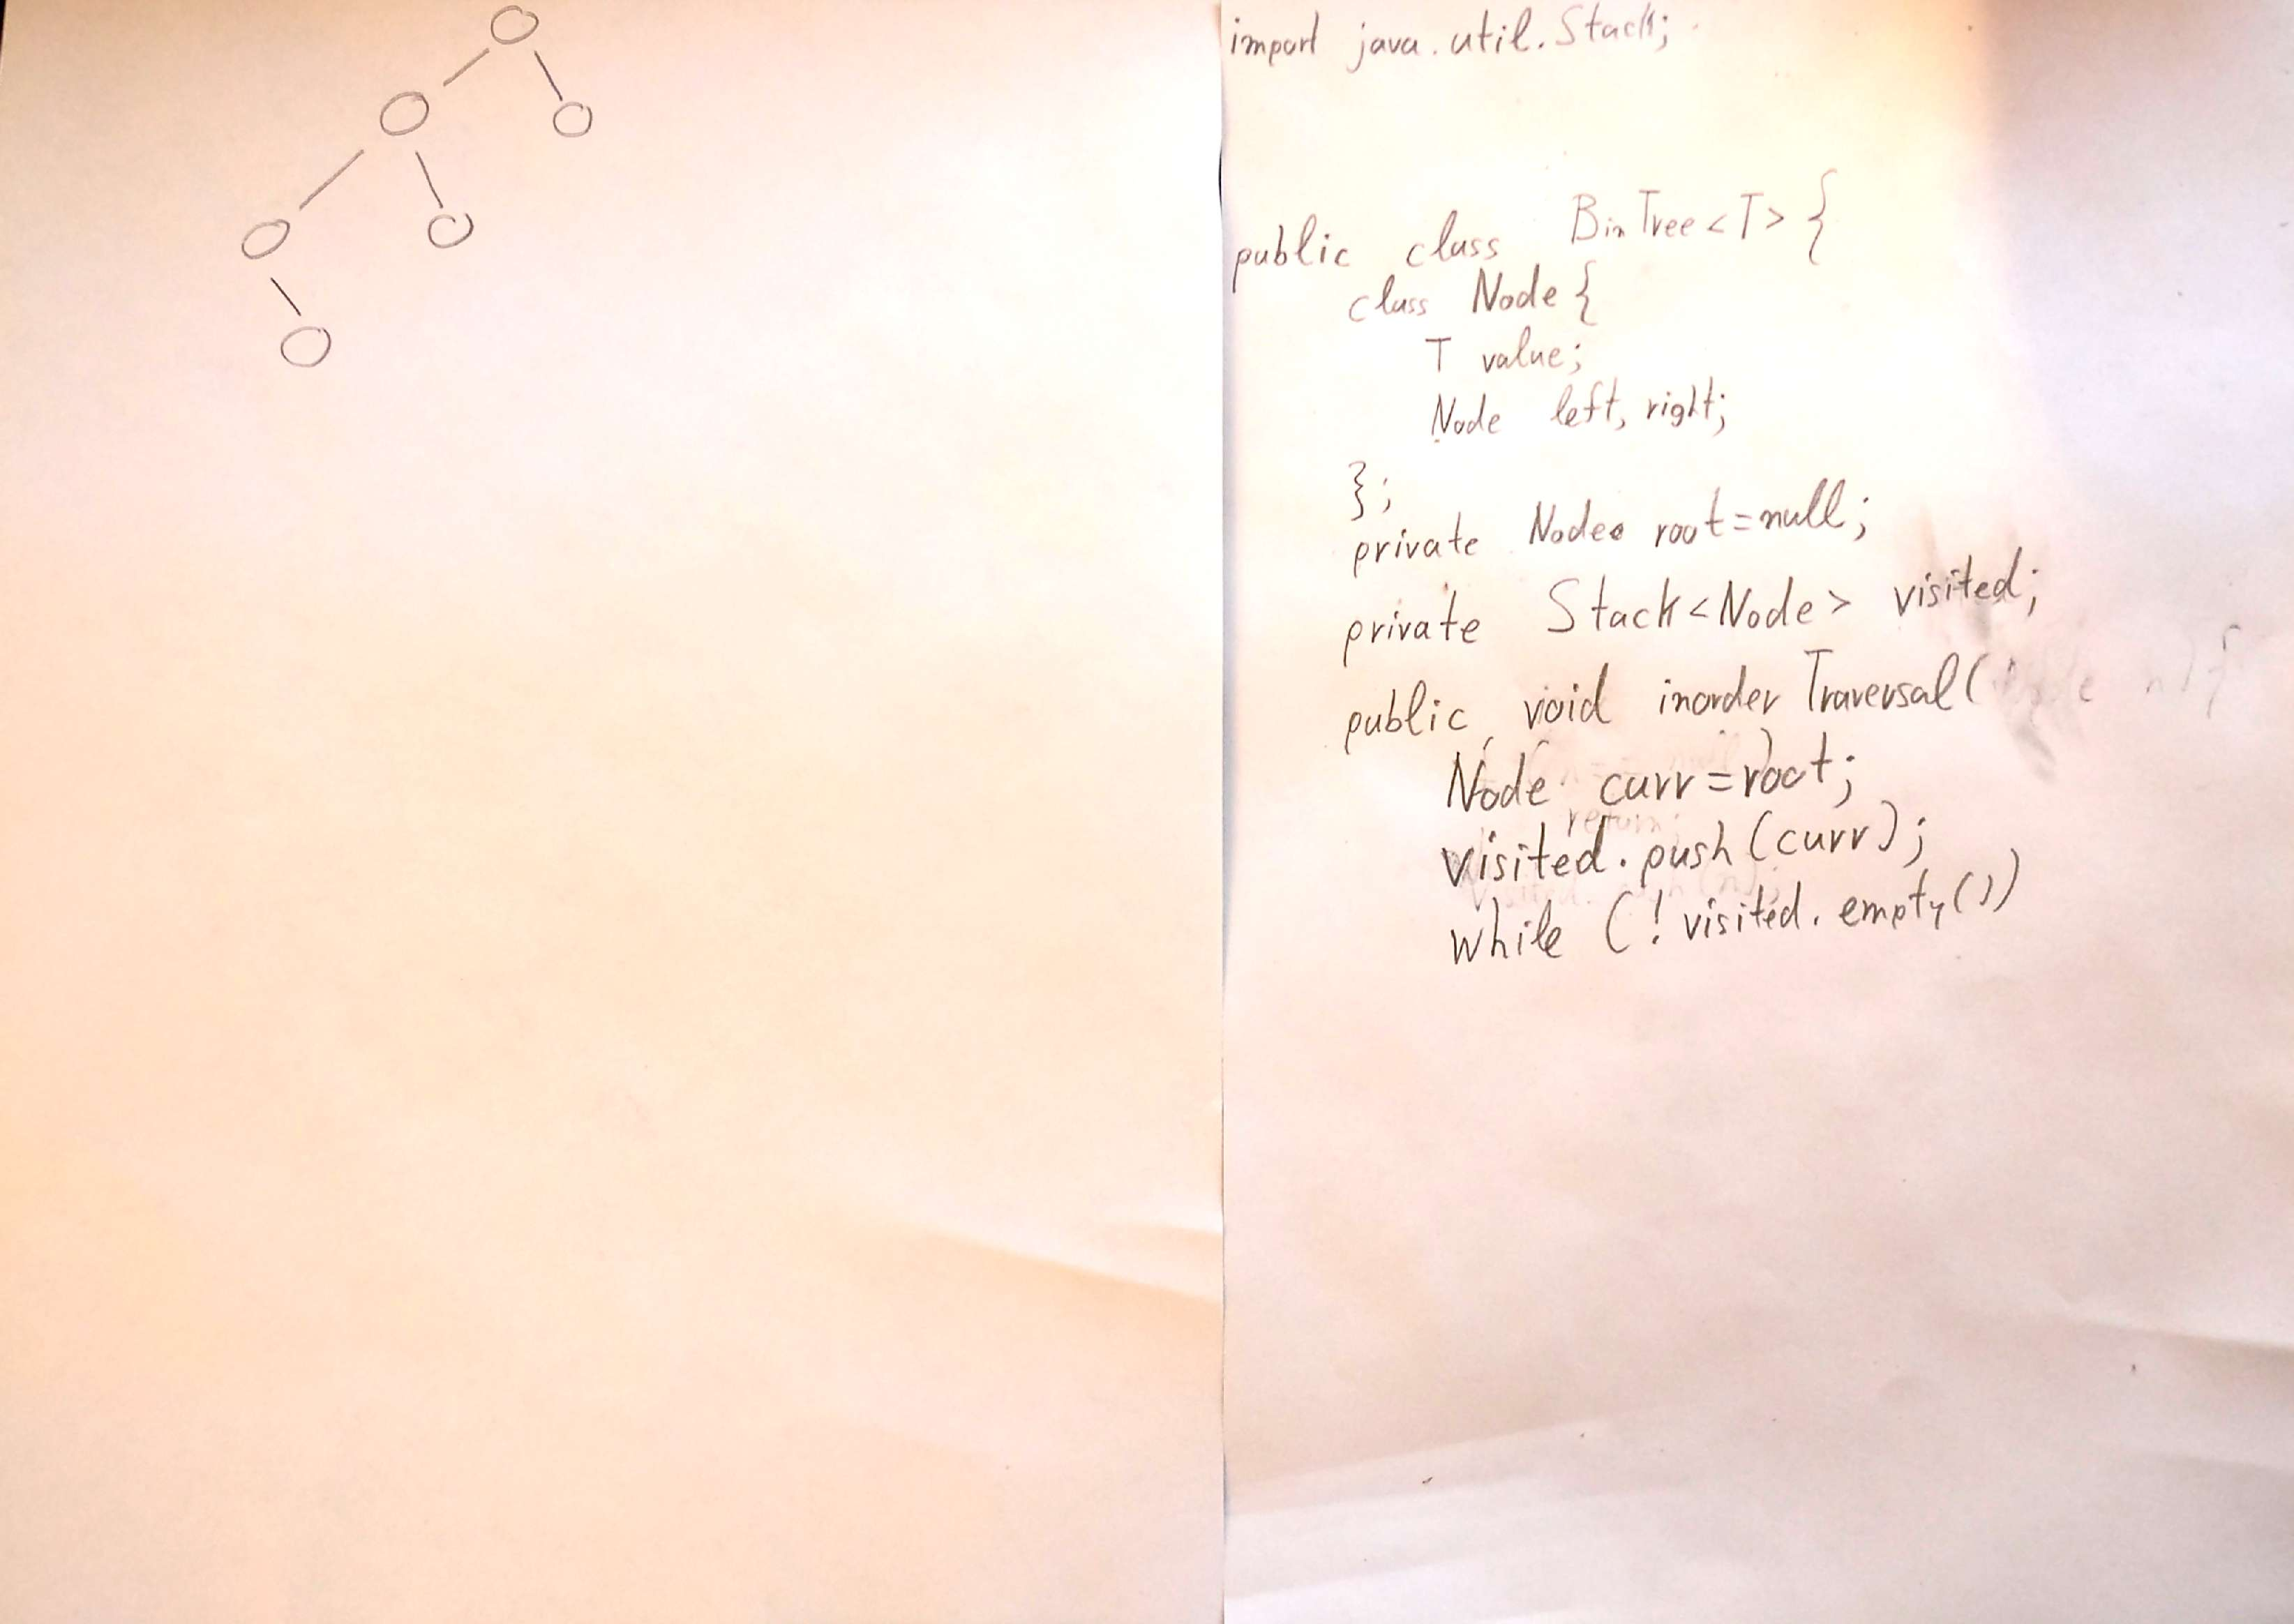 import java.util.Stack;
public class BinTree<T> {
class Node {
T value;
Node left, right;
};
private Node root=null;
private Stack<Node> visited;
public void inorderTraversal(
Node curr=root;
visited.push(curr);
while (!visited.empty())